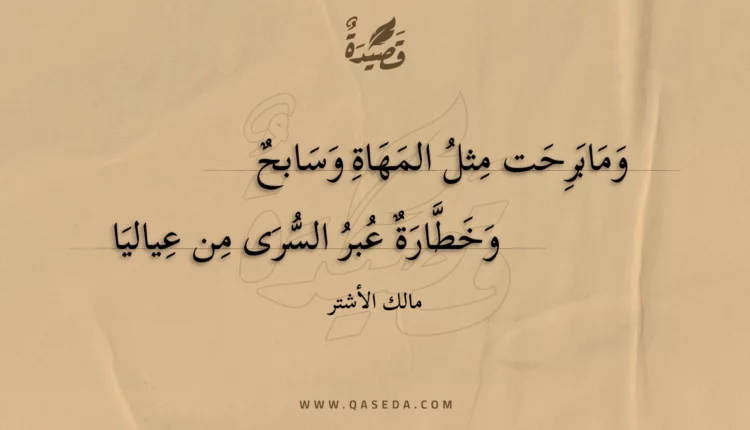 قَصِيدَةٌ
وَمَابَرِحَت مِثلُ المَهَاةِ وَسَابحٌ
وَخَطَّارَةٌ عُبرُ السُّرَى مِن عِياليَا
مالك الأشتر
WWW.QASEDA.COM